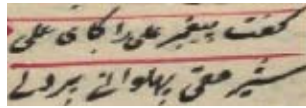 گفت پیغمبر علی را کای علی
شیر حقی پهلوانی پردلی